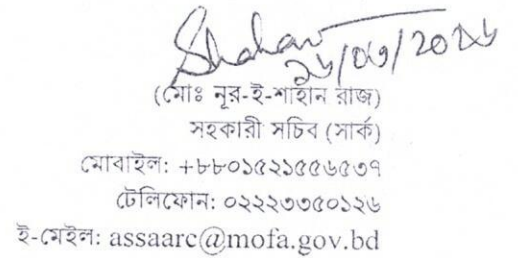 Shahan
১৬/০৩/২০২৬
(মোঃ নূর-ই-শাহান রাজ)
সহকারী সচিব (সার্ক)
মোবাইল: +৮৮০১৫২১৫৫৬৫৩৭
টেলিফোন: ০২২২৩৩৫০১২৬
ই-মেইল: assaarc@mofa.gov.bd